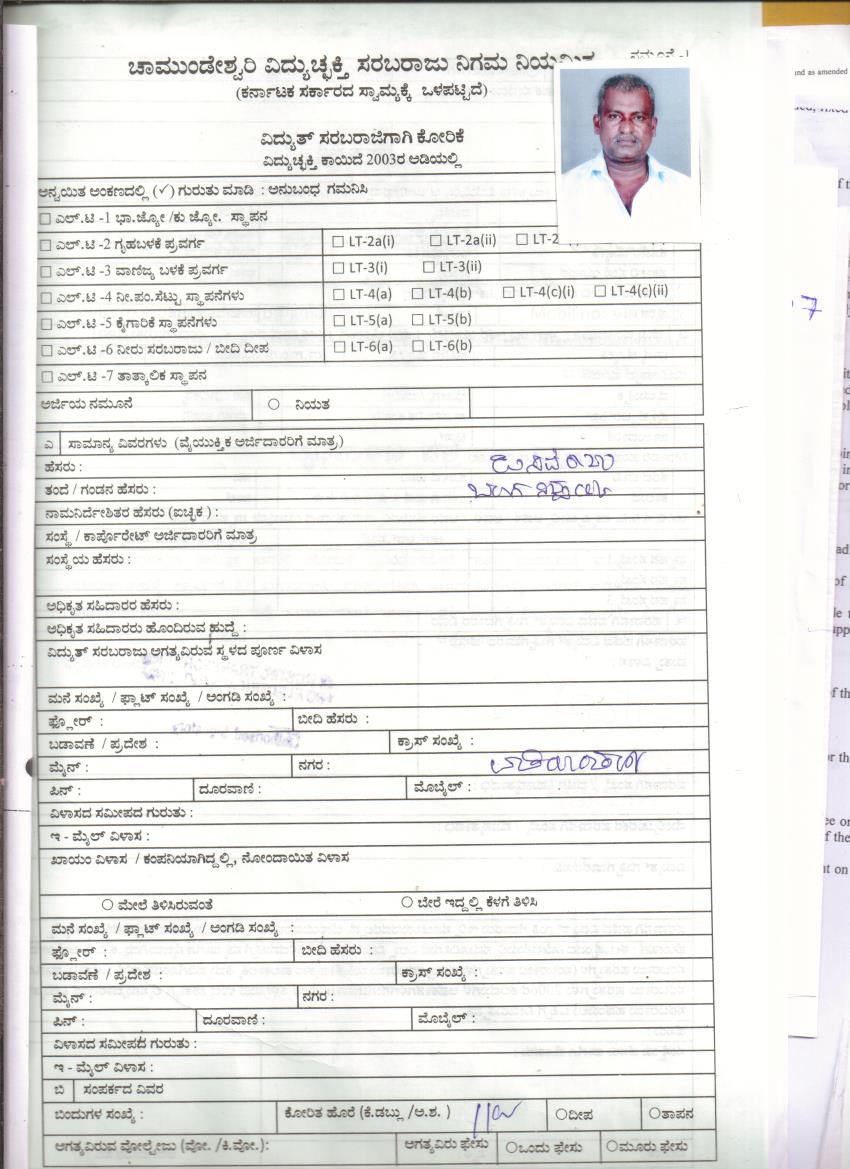 ನಮೂನೆ -1
ಚಾಮುಂಡೇಶ್ವರಿ ವಿದ್ಯುಚ್ಛಕ್ತಿ ಸರಬರಾಜು ನಿಗಮ ನಿಯಮಿತ
(ಕರ್ನಾಟಕ ಸರ್ಕಾರದ ಸ್ವಾಮ್ಯಕ್ಕೆ ಒಳಪಟ್ಟಿದೆ)
ವಿದ್ಯುತ್ ಸರಬರಾಜಿಗಾಗಿ ಕೋರಿಕೆ
ವಿದ್ಯುಚ್ಛಕ್ತಿ ಕಾಯಿದೆ 2003ರ ಅಡಿಯಲ್ಲಿ
ಅನ್ವಯಿತ ಅಂಕಣದಲ್ಲಿ (✓) ಗುರುತು ಮಾಡಿ : ಅನುಬಂಧ ಗಮನಿಸಿ
☐ ಎಲ್.ಟಿ -1 ಭಾ.ಜ್ಯೋ /ಕು ಜ್ಯೋ. ಸ್ಥಾಪನ
☐ ಎಲ್.ಟಿ -2 ಗೃಹಬಳಕೆ ಪ್ರವರ್ಗ ☐ LT-2a(i) ☐ LT-2a(ii) ☐ LT-2
☐ ಎಲ್.ಟಿ -3 ವಾಣಿಜ್ಯ ಬಳಕೆ ಪ್ರವರ್ಗ ☐ LT-3(i) ☐ LT-3(ii)
☐ ಎಲ್.ಟಿ -4 ನೀ.ಪಂ.ಸೆಟ್ಟು ಸ್ಥಾಪನೆಗಳು ☐ LT-4(a) ☐ LT-4(b) ☐ LT-4(c)(i) ☐ LT-4(c)(ii)
☐ ಎಲ್.ಟಿ -5 ಕೈಗಾರಿಕೆ ಸ್ಥಾಪನೆಗಳು ☐ LT-5(a) ☐ LT-5(b)
☐ ಎಲ್.ಟಿ -6 ನೀರು ಸರಬರಾಜು / ಬೀದಿ ದೀಪ ☐ LT-6(a) ☐ LT-6(b)
☐ ಎಲ್.ಟಿ -7 ತಾತ್ಕಾಲಿಕ ಸ್ಥಾಪನ
ಅರ್ಜಿಯ ನಮೂನೆ ○ ನಿಯತ
ಎ ಸಾಮಾನ್ಯ ವಿವರಗಳು (ವೈಯುಕ್ತಿಕ ಅರ್ಜಿದಾರರಿಗೆ ಮಾತ್ರ)
ಹೆಸರು :
ತಂದೆ / ಗಂಡನ ಹೆಸರು :
ನಾಮನಿರ್ದೇಶಿತರ ಹೆಸರು (ಐಚ್ಛಿಕ ) :
ಸಂಸ್ಥೆ / ಕಾರ್ಪೊರೇಟ್ ಅರ್ಜಿದಾರರಿಗೆ ಮಾತ್ರ
ಸಂಸ್ಥೆಯ ಹೆಸರು :
ಅಧಿಕೃತ ಸಹಿದಾರರ ಹೆಸರು :
ಅಧಿಕೃತ ಸಹಿದಾರರು ಹೊಂದಿರುವ ಹುದ್ದೆ :
ವಿದ್ಯುತ್ ಸರಬರಾಜು ಅಗತ್ಯವಿರುವ ಸ್ಥಳದ ಪೂರ್ಣ ವಿಳಾಸ
ಮನೆ ಸಂಖ್ಯೆ / ಫ್ಲಾಟ್ ಸಂಖ್ಯೆ / ಅಂಗಡಿ ಸಂಖ್ಯೆ :
ಫ್ಲೋರ್ : ಬೀದಿ ಹೆಸರು :
ಬಡಾವಣೆ / ಪ್ರದೇಶ : ಕ್ರಾಸ್ ಸಂಖ್ಯೆ :
ಮೈನ್ : ನಗರ :
ಪಿನ್ : ದೂರವಾಣಿ : ಮೊಬೈಲ್ :
ವಿಳಾಸದ ಸಮೀಪದ ಗುರುತು :
ಇ - ಮೈಲ್ ವಿಳಾಸ :
ಖಾಯಂ ವಿಳಾಸ / ಕಂಪನಿಯಾಗಿದ್ದಲ್ಲಿ, ನೋಂದಾಯಿತ ವಿಳಾಸ
○ ಮೇಲೆ ತಿಳಿಸಿರುವಂತೆ ○ ಬೇರೆ ಇದ್ದಲ್ಲಿ ಕೆಳಗೆ ತಿಳಿಸಿ
ಮನೆ ಸಂಖ್ಯೆ / ಫ್ಲಾಟ್ ಸಂಖ್ಯೆ / ಅಂಗಡಿ ಸಂಖ್ಯೆ :
ಫ್ಲೋರ್ : ಬೀದಿ ಹೆಸರು :
ಬಡಾವಣೆ / ಪ್ರದೇಶ : ಕ್ರಾಸ್ ಸಂಖ್ಯೆ :
ಮೈನ್ : ನಗರ :
ಪಿನ್ : ದೂರವಾಣಿ : ಮೊಬೈಲ್ :
ವಿಳಾಸದ ಸಮೀಪದ ಗುರುತು :
ಇ - ಮೈಲ್ ವಿಳಾಸ :
ಬಿ ಸಂಪರ್ಕದ ವಿವರ
ಬಿಂದುಗಳ ಸಂಖ್ಯೆ : ಕೋರಿತ ಹೊರೆ (ಕೆ.ಡಬ್ಲು /ಅ.ಶ. ) ○ದೀಪ ○ತಾಪನ
ಅಗತ್ಯವಿರುವ ವೋಲ್ಟೇಜು (ವೋ. /ಕಿ.ವೋ.): ಅಗತ್ಯವಿರು ಫೇಸು ○ಒಂದು ಫೇಸು ○ಮೂರು ಫೇಸು